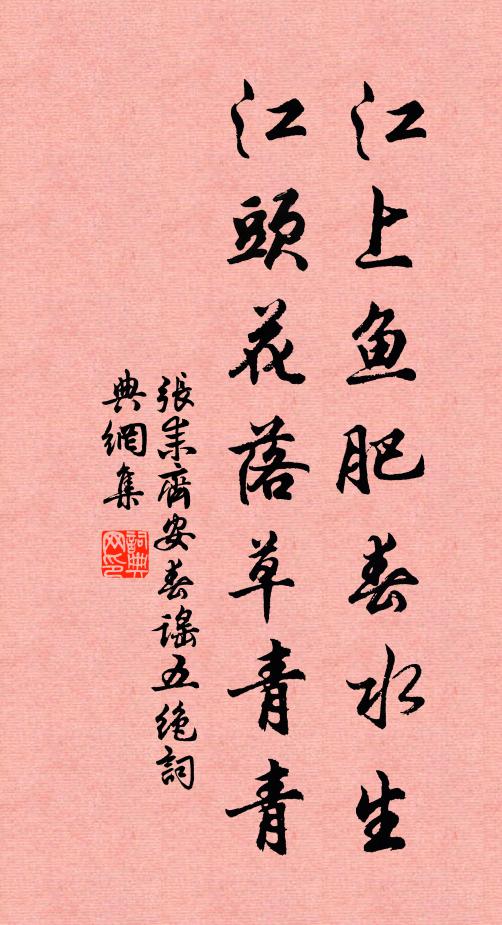 江上鱼肥春水生
江頭花落草青青
張耒齊安春謠五絶詞
典網集
詞典网印